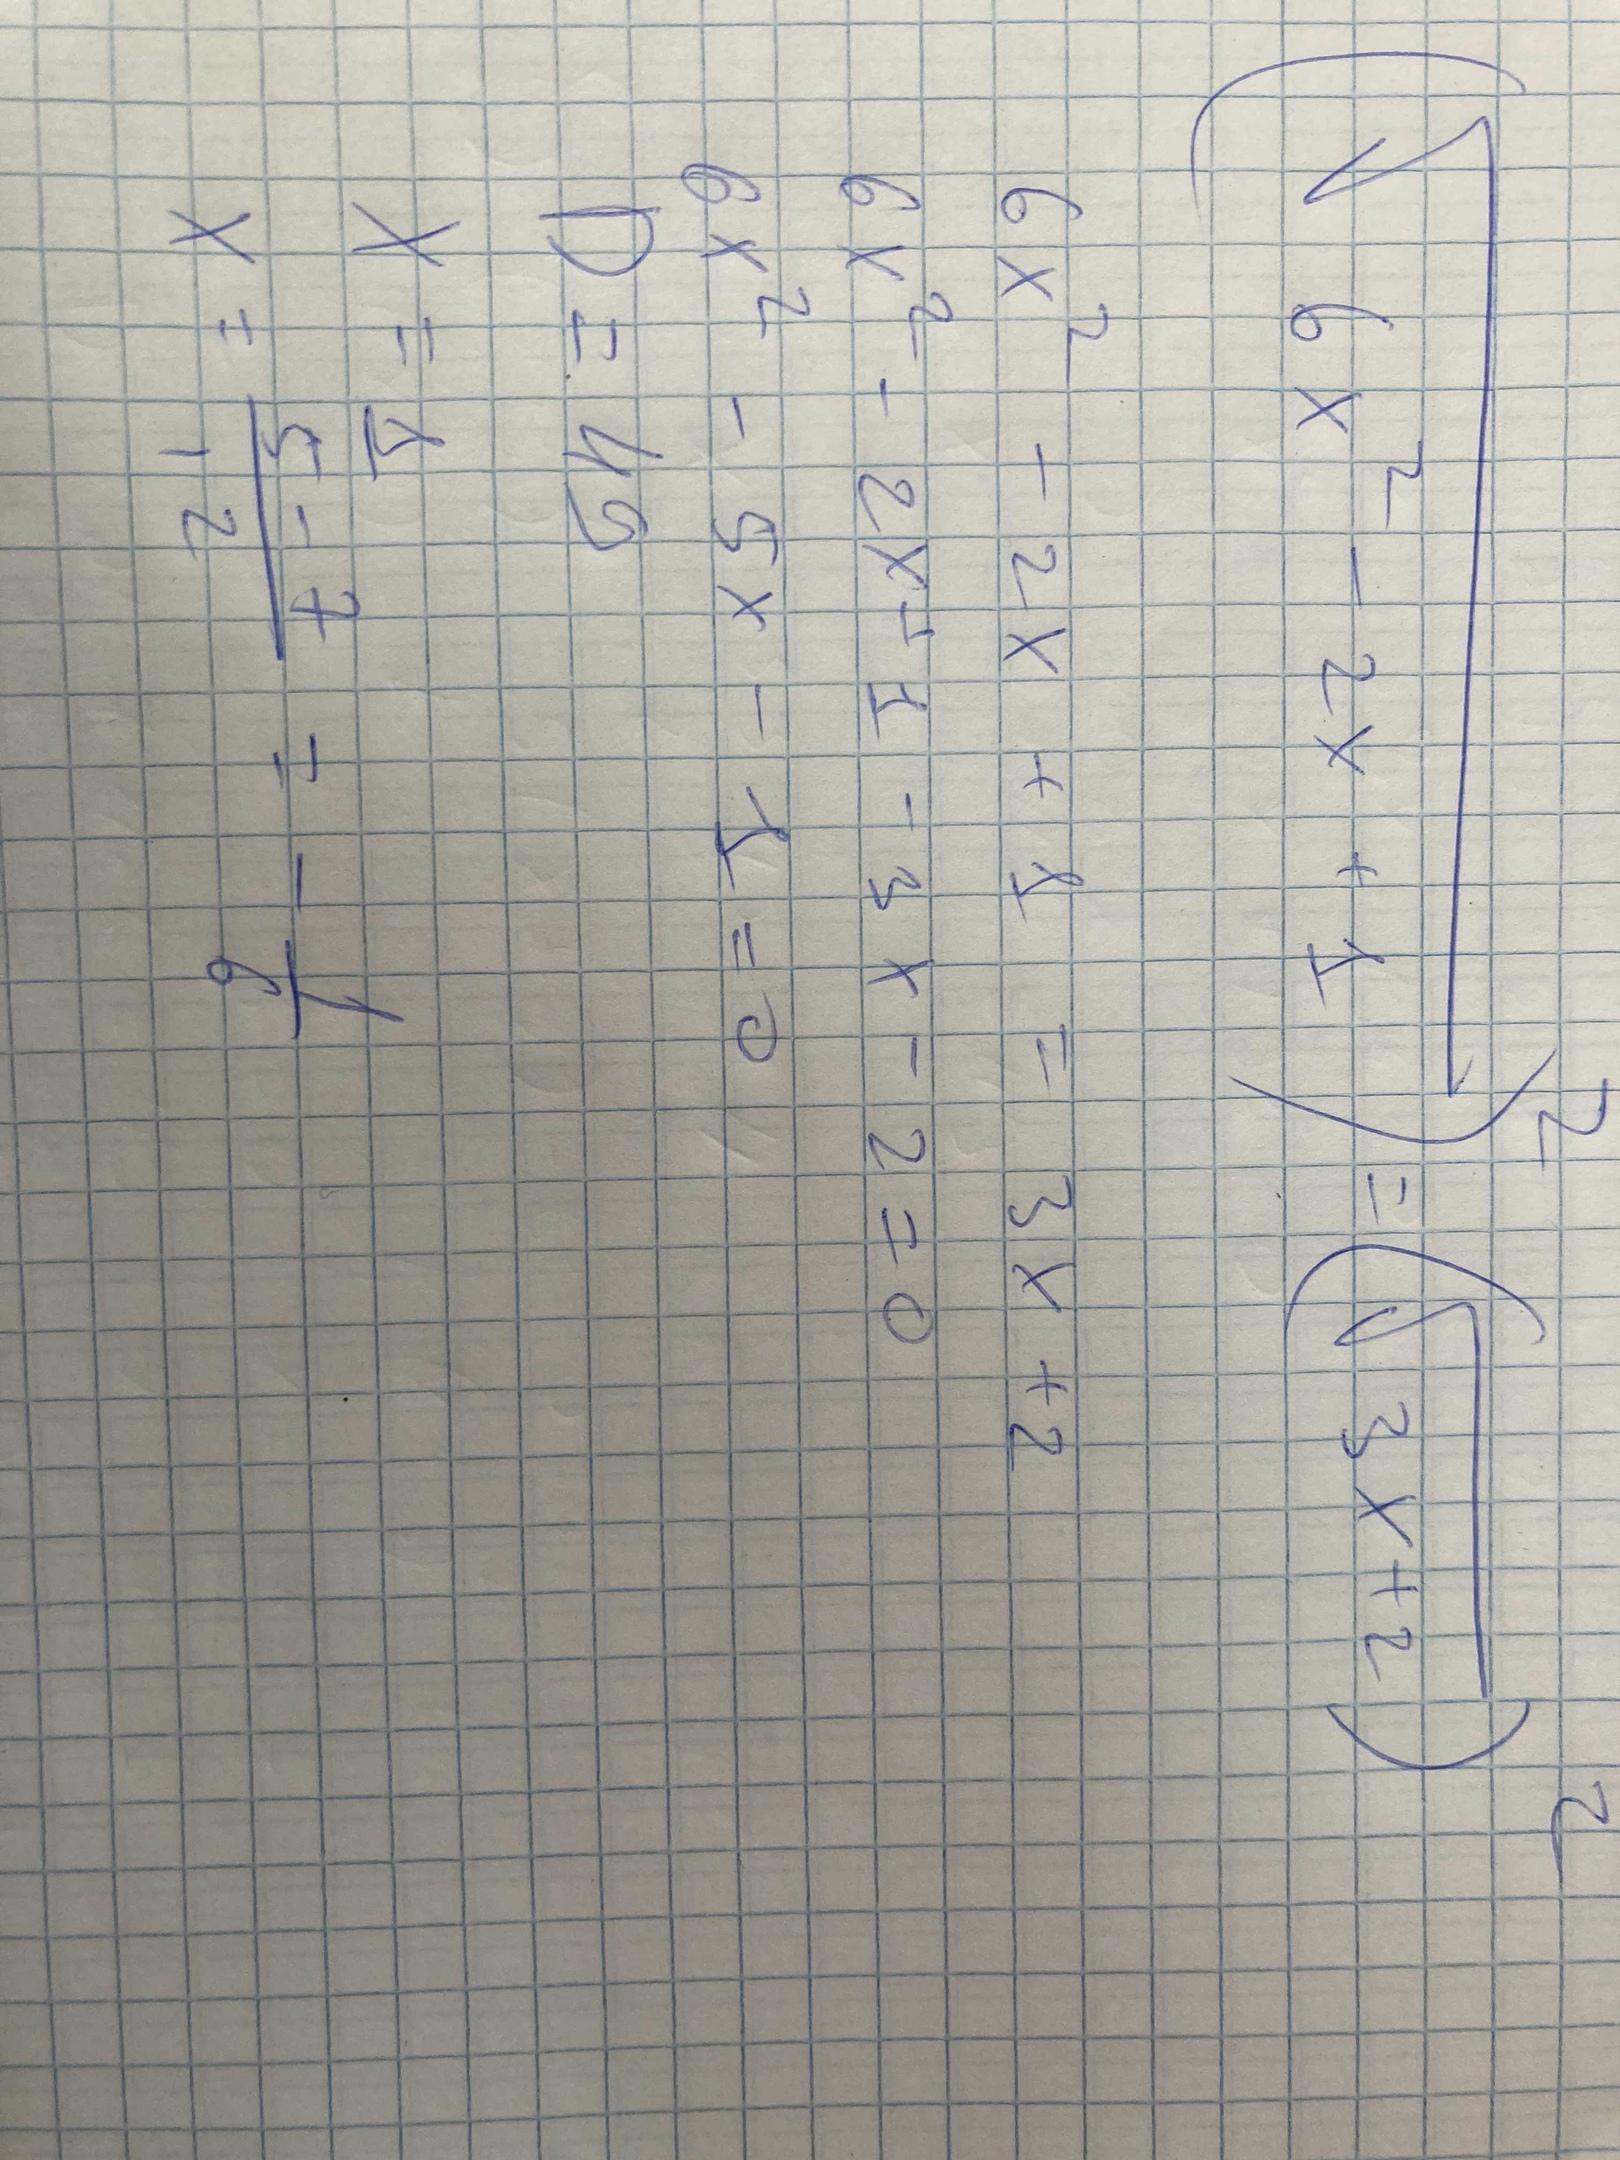 (√6x² - 2x + 1)² = (√3x+2)²
6x² - 2x + 1 = 3x + 2
6x² - 2x + 1 - 3x - 2 = 0
6x² - 5x - 1 = 0
D = 49
x = 1
x = (5 - 7)/12 = - 1/6